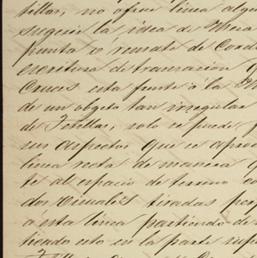 tillar, no ofrece linea algu
sugerir la idea de
punta o remate de Cord
escritura de transaccion q
Cruces esta frente á la
de un objeto tan irregular
de Tetillas, solo se puede
sus aspectos que se aprox
linea recta de manera q
te al espacio de terreno co
dos visuales tiradas por
á esta linea partiendo de
ticado esto en la parte supe